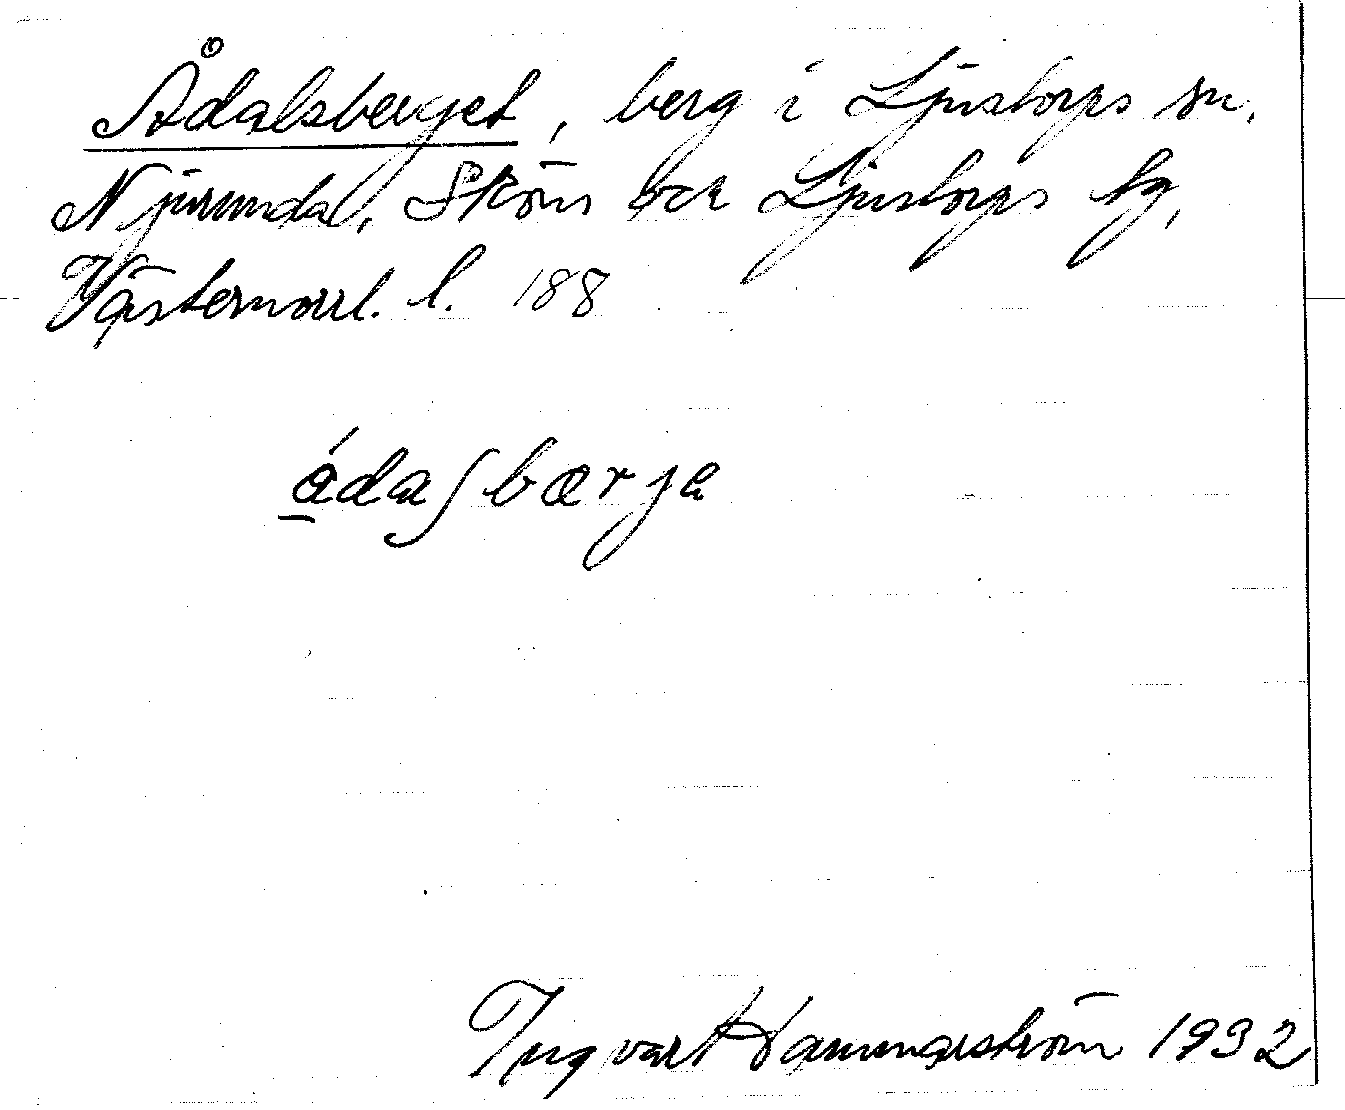 Ådalsberget, berg i Ljustorps sn.
Njurunda, Sköns och Ljustorps tg,
Västernorrl. l. 188
ádaʃbærjɐ
Ingvart Hammarström 1932